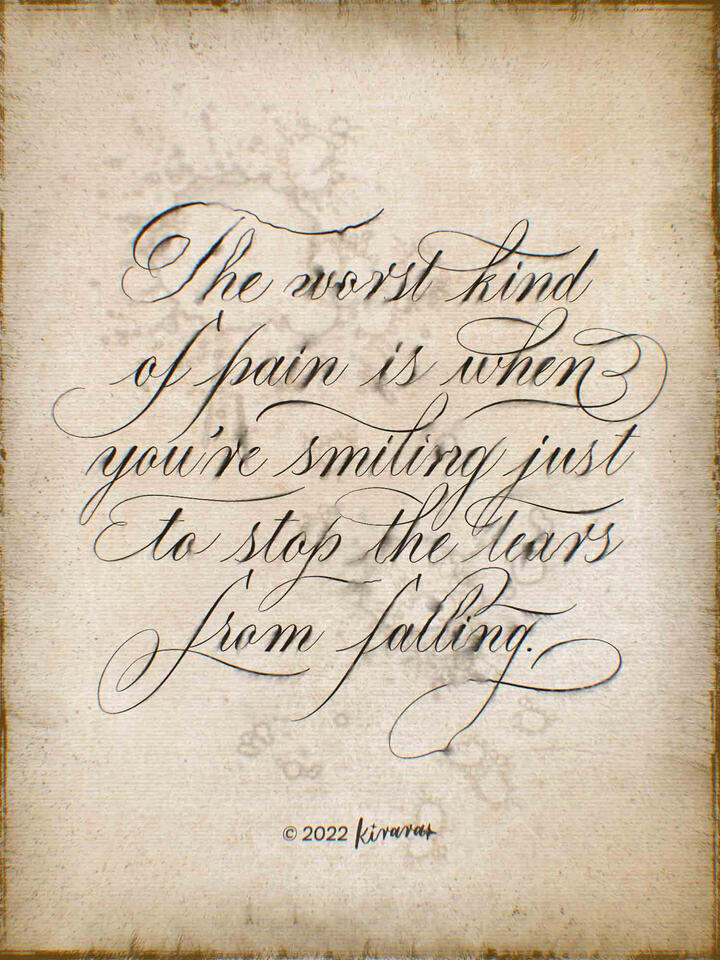 The worst kind
of pain is when
you're smiling just
to stop the tears
from falling.
© 2022 kiraras